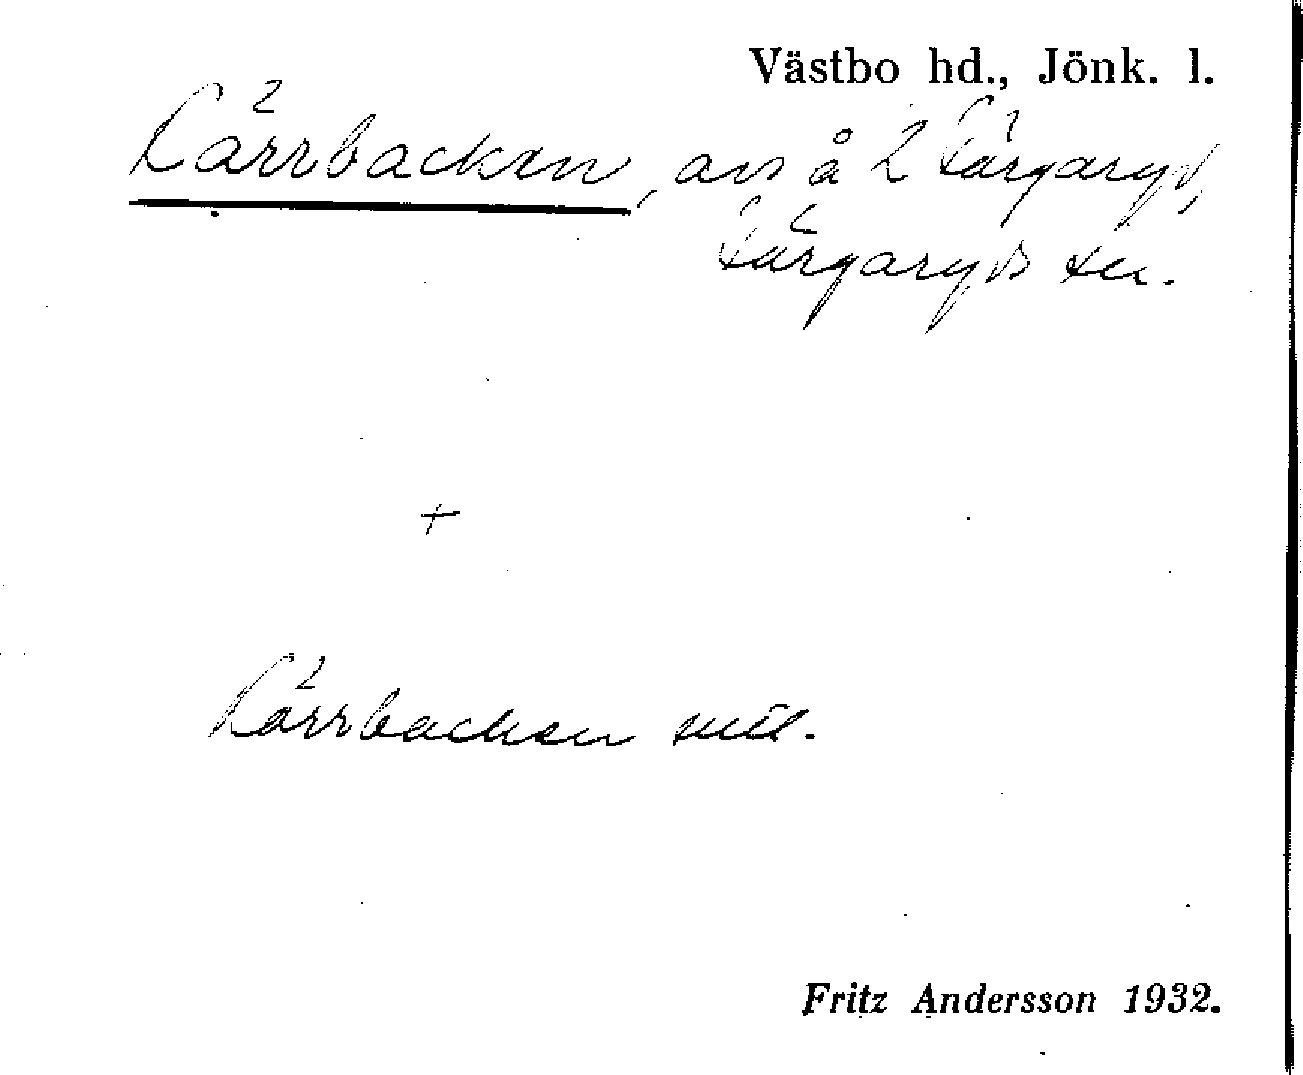 Västbo hd., Jönk. l.
Kärrbacken, avs å 2 Färgaryd,
Färgaryds sn.
+
Kärrbacken
Fritz Andersson 1932.